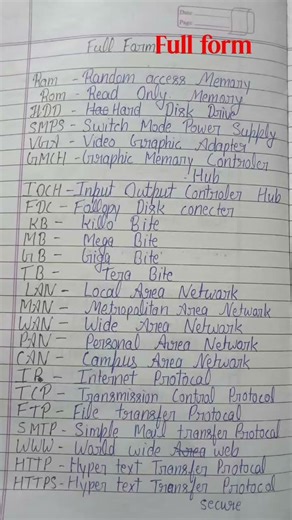 Date:
Page:
Full Form Full form
Ram - Random access Memory
Rom - Read Only Memory
HDD - Has Hard Disk Drive
SMPS - Switch Mode Power Supply
VGA - Video Graphic Adapter
GMCH - Graphic Memory Controler
Hub
IOCH - Input Output Controler Hub
FDC - Fallopy Disk conecter
KB - Killo Bite
MB - Mega Bite
GB - Giga Bite
TB - Tera Bite
LAN - Local Area Network
MAN - Metropolitan Area Network
WAN - Wide Area Network
PAN - Personal Area Network
CAN - Campus Area Network
IP - Internet Protocal
TCP - Transmission Control Protocal
FTP - File transfer Protocal
SMTP - Simple Mail transfer Protocal
WWW - World wide Area web
HTTP - Hyper text Transfer Protocal
HTTPS - Hyper text Transfer Protocal
secure